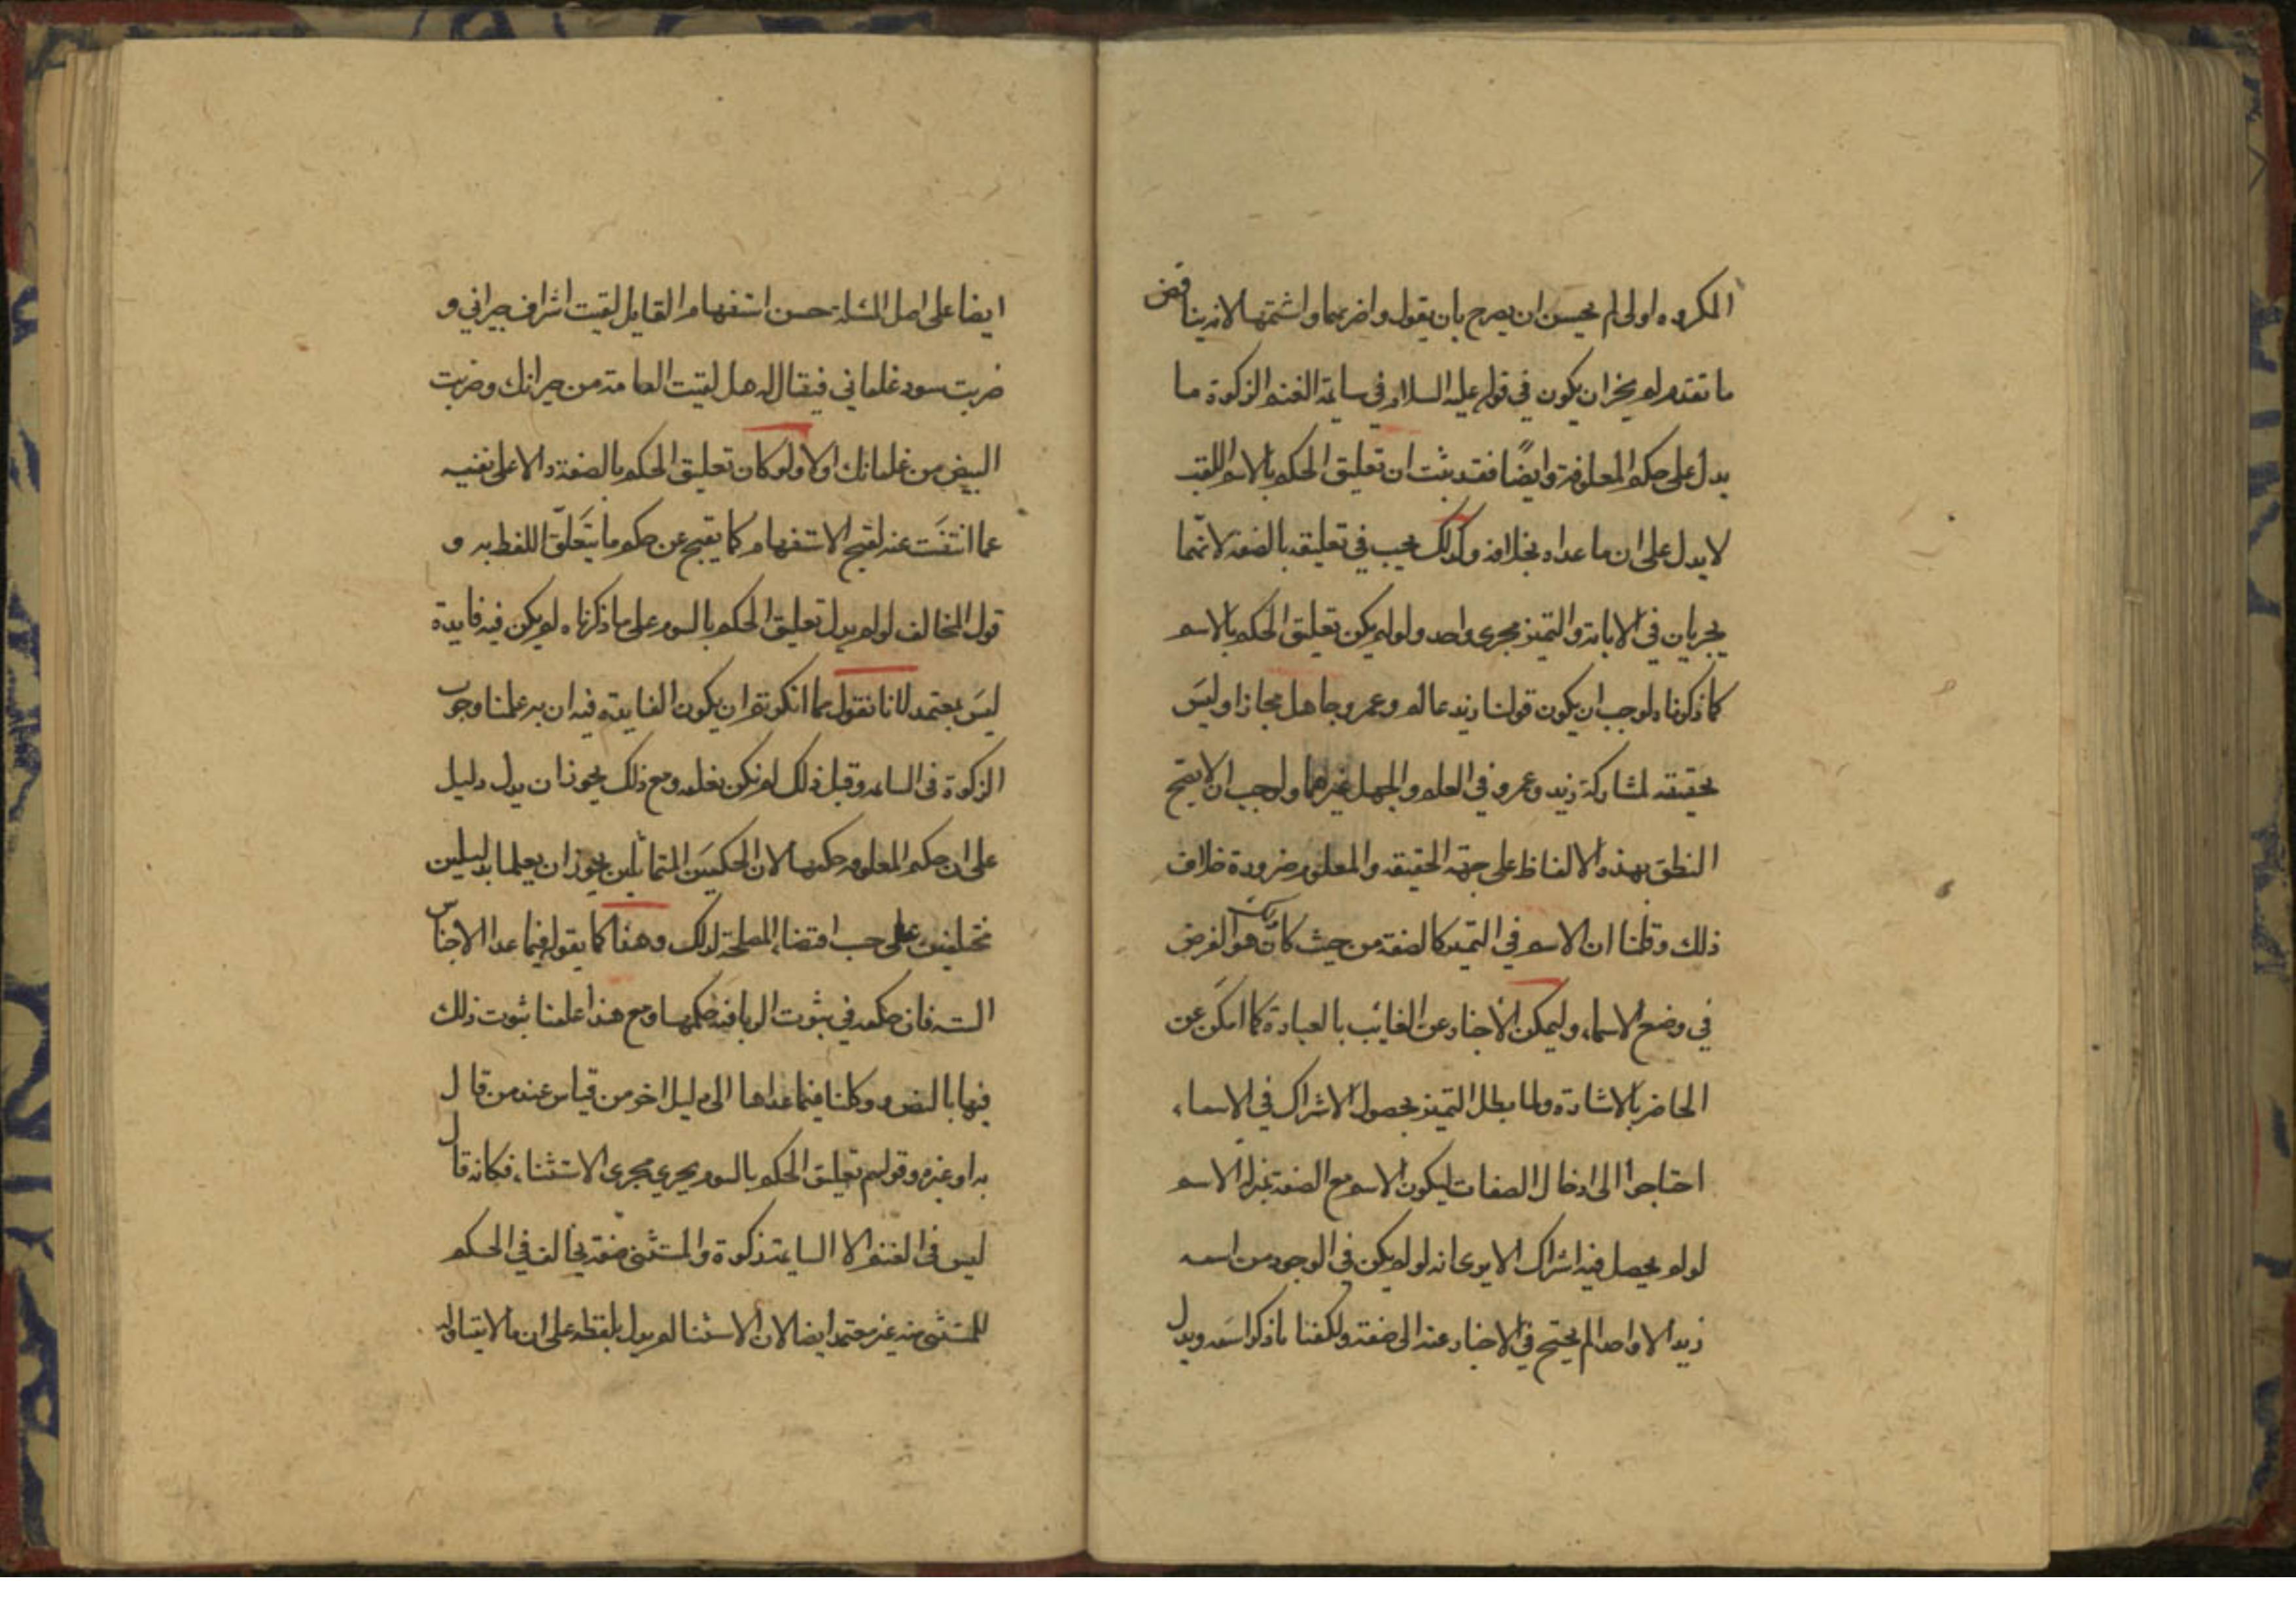 المكروه اولى لم يحسن ان يصرح بان يقول واضربهما واشتمهما لانه يناقض
ما تقدم ولم يخز ان يكون في قوله عليه السلام في سايمة الغنم الزكوة ما
يدل على حكم المعلوفة وايضًا فقد ثبت ان تعليق الحكم بالاسم اللقب
لا يدل على ان ما عداه بخلافه وكذلك يجب في تعليقه بالصفة لانّهما
يجريان في الابانة والتميز مجرى واحد ولو لم يكن تعليق الحكم بالاسم
كما ذكرناه لوجب ان يكون قولنا زيد عالم وعمرو جاهل مجازا وليسَ
بحقيقه لمشاركة زيد وعمرو في العلم والجهل غيرهما ولوجب ان لا يصح
النطق بهذه الالفاظ على جهة الحقيقه والمعلوم ضرورة خلاف
ذلك وقلنا ان الاسم في التميز كالصفة من حيث كانت هو الغرض
في وضع الاسماء وليمكن الاخبار عن الغائب بالعبادة كما امكن عن
الحاضر بالاشارة ولما بطل التميز بحصول الاشراك في الاسماء
احتاجوا الى ادخال الصفات ليكون الاسم مع الصفة بمنزلة الاسم
لو لم يحصل فيه اشراك الا يرى انه لو لم يكن في الوجود من اسمه
زيد الا واحد لم يحتج في الاخبار عنه الى صفته ولكفنا ما ذكر اسمه ويدل
ايضا على اصل المسئلة حسن استفهام القايل لقيت اشراف جيراني و
ضربت سود غلماني فيقال له هل لقيت العامة من جيرانك وضربت
البيض من غلمانك او لا ولو كان تعليق الحكم بالصفة دالا على نفيه
عما انتفَت عنه لقبح الاستفهام كما يقبح عن حكم ما يتَعلّق اللفظ به و
قول المخالف لو لم يدل تعليق الحكم بالسوم على ما ذكرناه لم يكن فيه فايدة
ليسَ بمعتمد لانا نقول ما انكرتم ان يكون الفايدة فيه ان به علمنا وجوب
الزكوة في السايمه وقبل ذلك لم نكن نعلمه ومع ذلك يجوز ان يدل دليل
على ان حكم المعلوفه حكمها لان الحكمين المتماثلين يجوز ان يعلما بدليلين
مختلفين على حسب اقتضاء المصلحة لذلك وهذا كما يقوله فيما عدا الاجناس
السته فان حكمه في ثبوت الربا فيه حكمها ومع هذا علمنا ثبوت ذلك
فيها بالنص ووكلنا فيما عداها الى دليل اخر من قياس عند من قال
به او غيره وقولهم تعليق الحكم بالسوم يجري مجرى الاستثناء فكانه قال
ليس في الغنم الا السايمة زكوة والمستثنى صفته يخالف في الحكم
للمستثنى منه غير معتمد ايضا لان الاستثنا لم يدل بلفظه على ان ما لا يتناوله